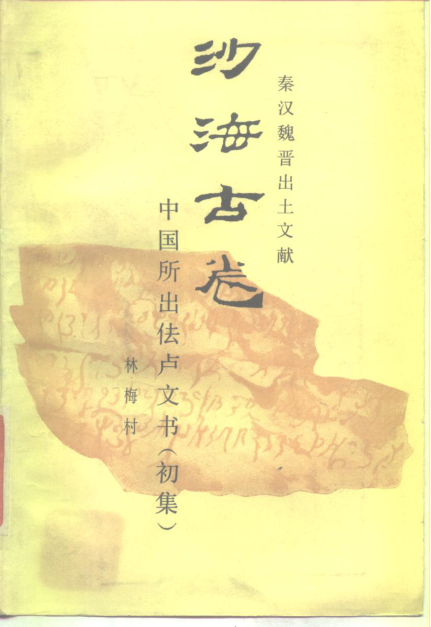 秦汉魏晋出土文献
沙海古卷
中国所出佉卢文书(初集)
林梅村